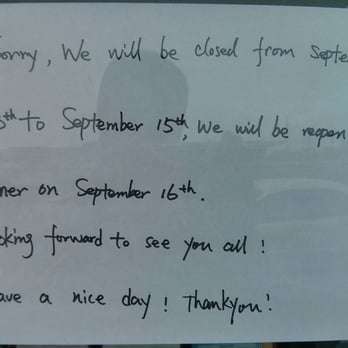 orry, We will be closed from Septe
th to September 15th, We will be reopen
ner on September 16th.
oking forward to see you all!
ave a nice day! Thankyou!